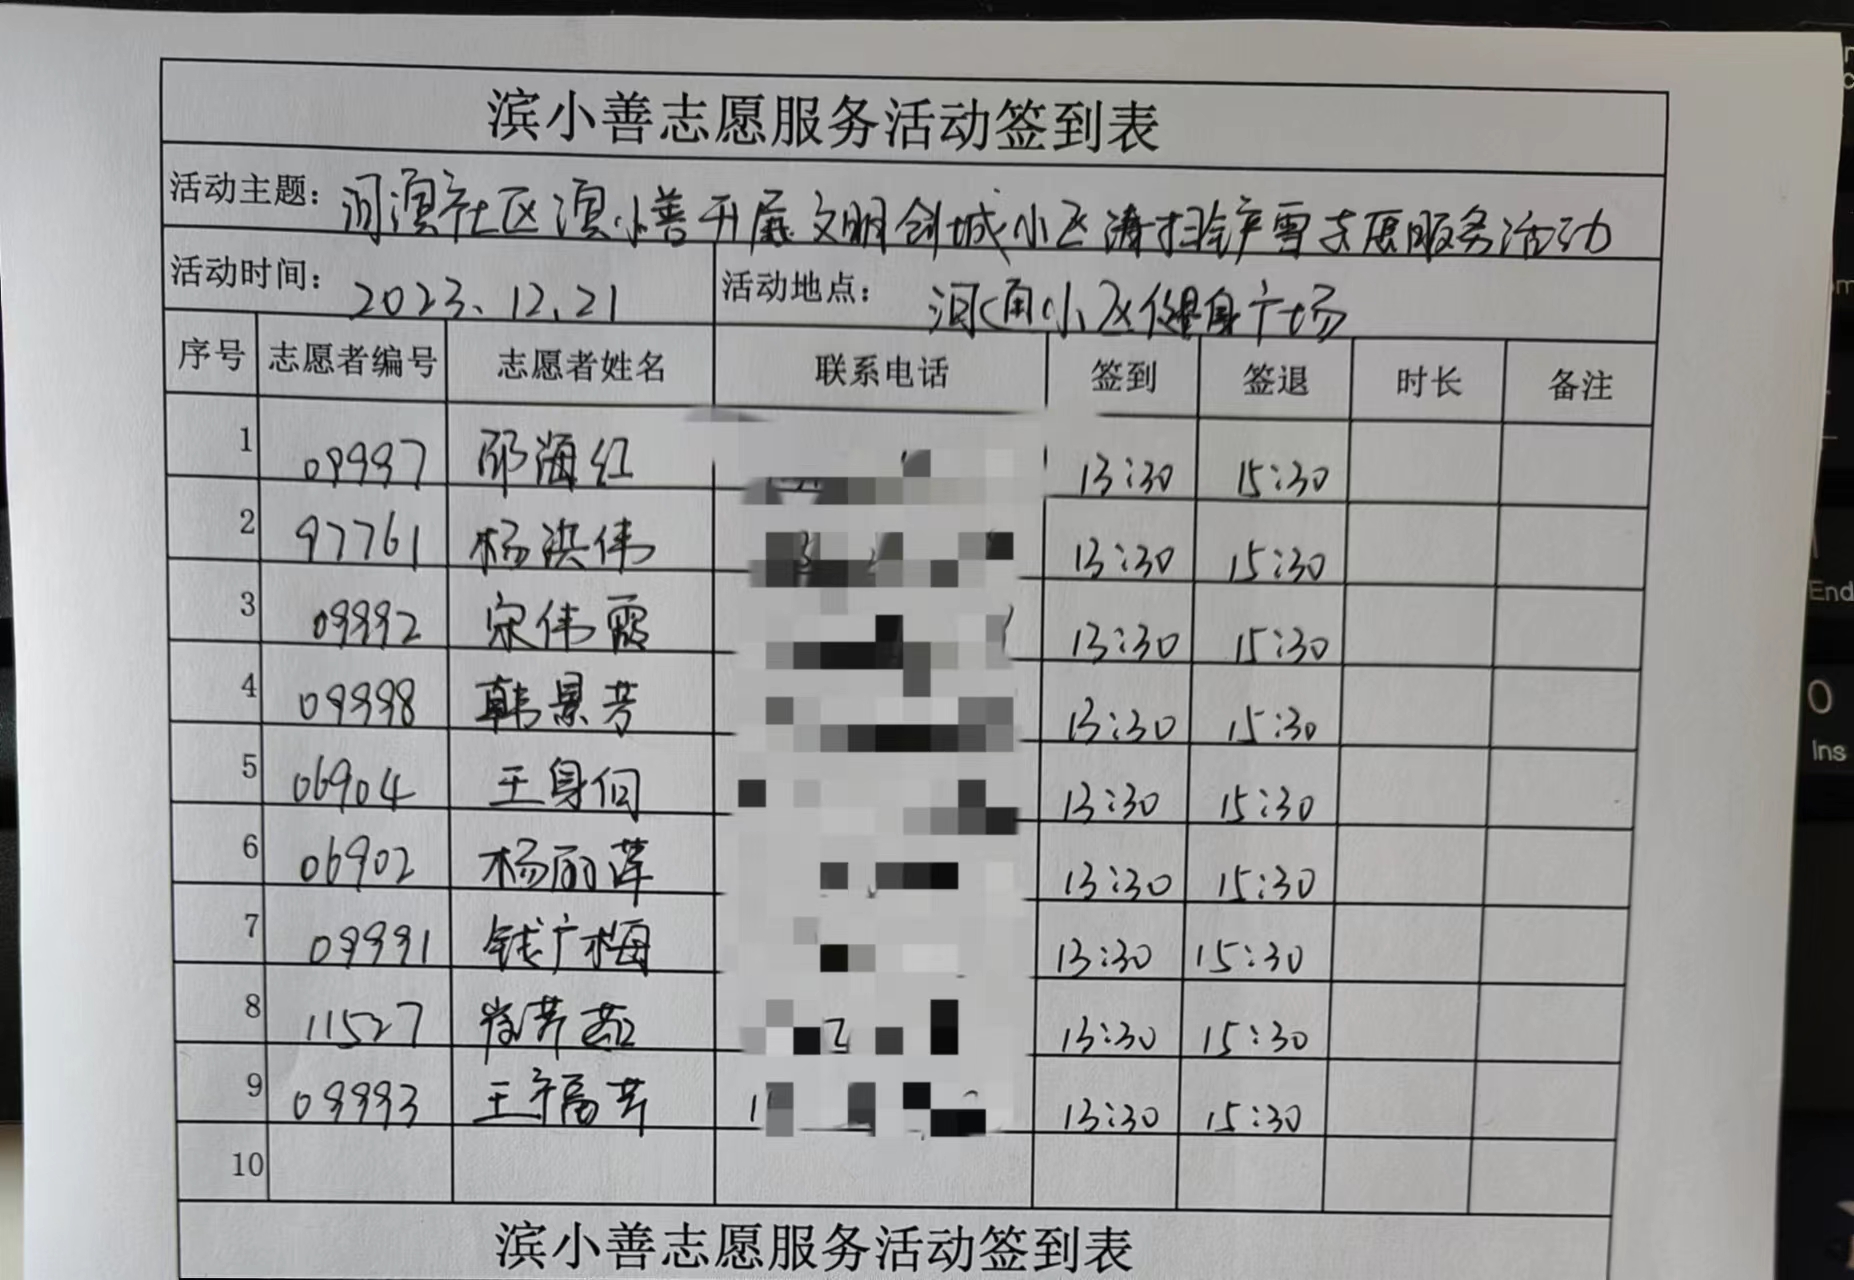 滨小善志愿服务活动签到表
活动主题: 河滨社区滨小善开展文明创城小区清扫铲雪志愿服务活动
活动时间: 2023.12.21 活动地点: 河涌小区健身广场
序号 志愿者编号 志愿者姓名 联系电话 签到 签退 时长 备注
1 09997 邵海红 13:30 15:30
2 97761 杨洪伟 13:30 15:30
3 09992 宋伟霞 13:30 15:30
4 09998 韩景芳 13:30 15:30
5 06904 王身何 13:30 15:30
6 06902 杨丽莲 13:30 15:30
7 09991 钱广梅 13:30 15:30
8 11527 13:30 15:30
9 09993 王福芳 13:30 15:30
10
滨小善志愿服务活动签到表
End
0
Ins